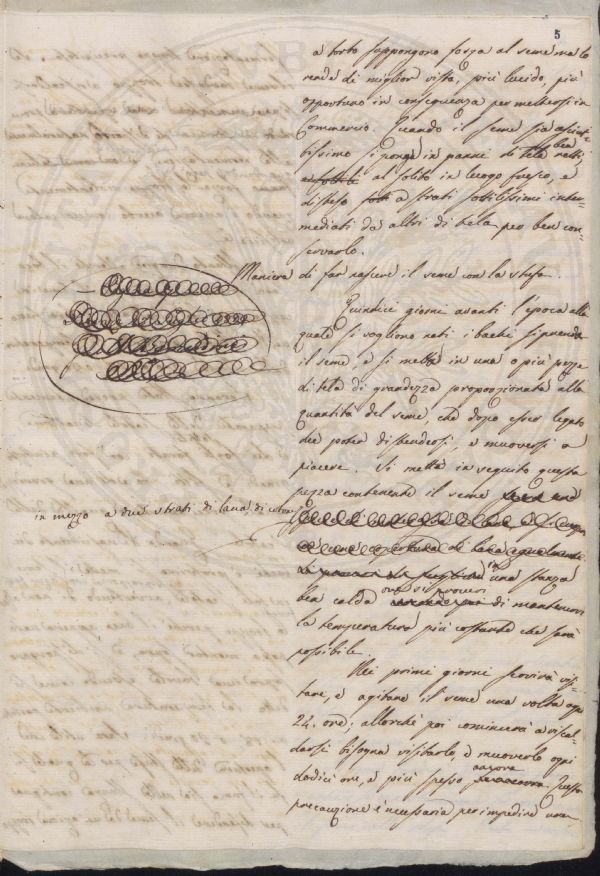 5
a torto suppongono forza al seme ma lo
rende di miglior vista, più lucido, più
opportuno in conseguenza per mettersi in
Commercio. Quando il seme sia asciut-
bissimo si ponga in panni di tela ben netti
al solito in luogo fresco, e
disteso a strati sottilissimi inter-
mediati da altri di tela per ben con-
servarlo.
Maniera di far nascere il seme con la stufa.
Quindici giorni avanti l'epoca alla
quale si vogliono nati i bachi si prenda
il seme, e si metta in una o più pezze
di tela di grandezza proporzionata alla
quantità del seme, che dopo esser legato
dee poter distendersi, e muoversi a
piacere. Si metta in seguito questa
pezza contenente il seme
in mezzo a due strati di lana di cotone
in una stanza
ben calda ove si procuri di mantenervi
la temperatura più costante che sarà
possibile.
Nei primi giorni servirà visi-
tare, e agitare il seme una volta ogni
24. ore; allorchè poi comincerà a riscal-
darsi bisogna visitarlo, e muoverlo ogni
dodici ore, e più spesso ancora. Questa
precauzione è necessaria per impedire una